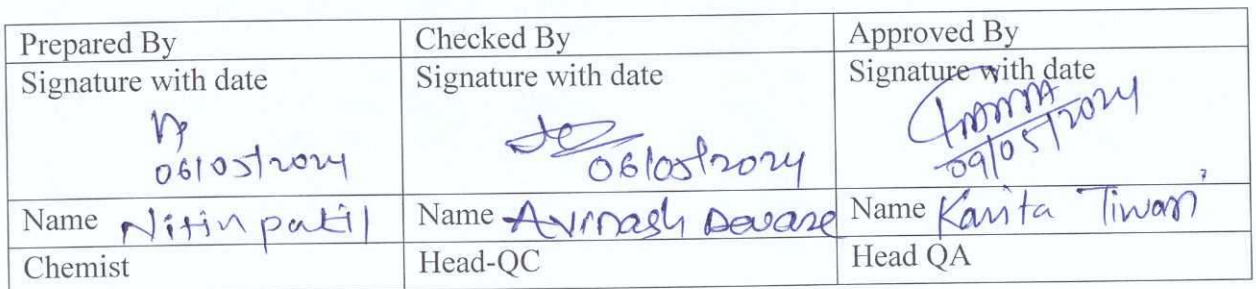 Prepared By Checked By Approved By
Signature with date Signature with date Signature with date
06/05/2024 06/05/2024 09/05/2024
Name Nitin patil Name Avinash Devare Name Kavita Tiwari
Chemist Head-QC Head QA